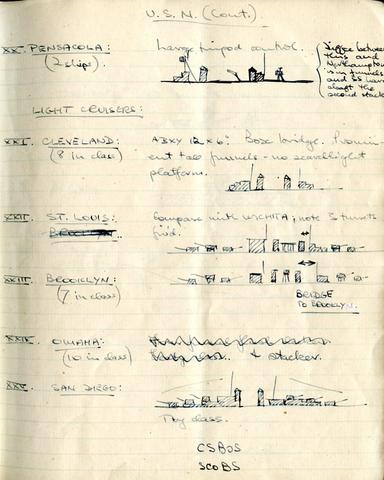 U.S.N. (Cont.)
XX. PENSACOLA:
(2 ships).
Large tripod control.
Differ between
this and
Northampton
is in funnels
and SS have
abaft the
second stack
LIGHT CRUISERS:
XXI. CLEVELAND:
(8 in class)
ABXY 12 x 6". Box bridge. Promin-
ent tall funnels - no searchlight
platform.
XXII. ST. LOUIS:
BROOKLYN.
Compare with WICHITA; note 5 turrets
fwd.
XXIII. BROOKLYN:
(7 in class)
BRIDGE
TO BROOKLYN.
XXIV. OMAHA:
(10 in class)
4 stacker.
XXV. SAN DIEGO:
class.
CSBOS
SCOBS